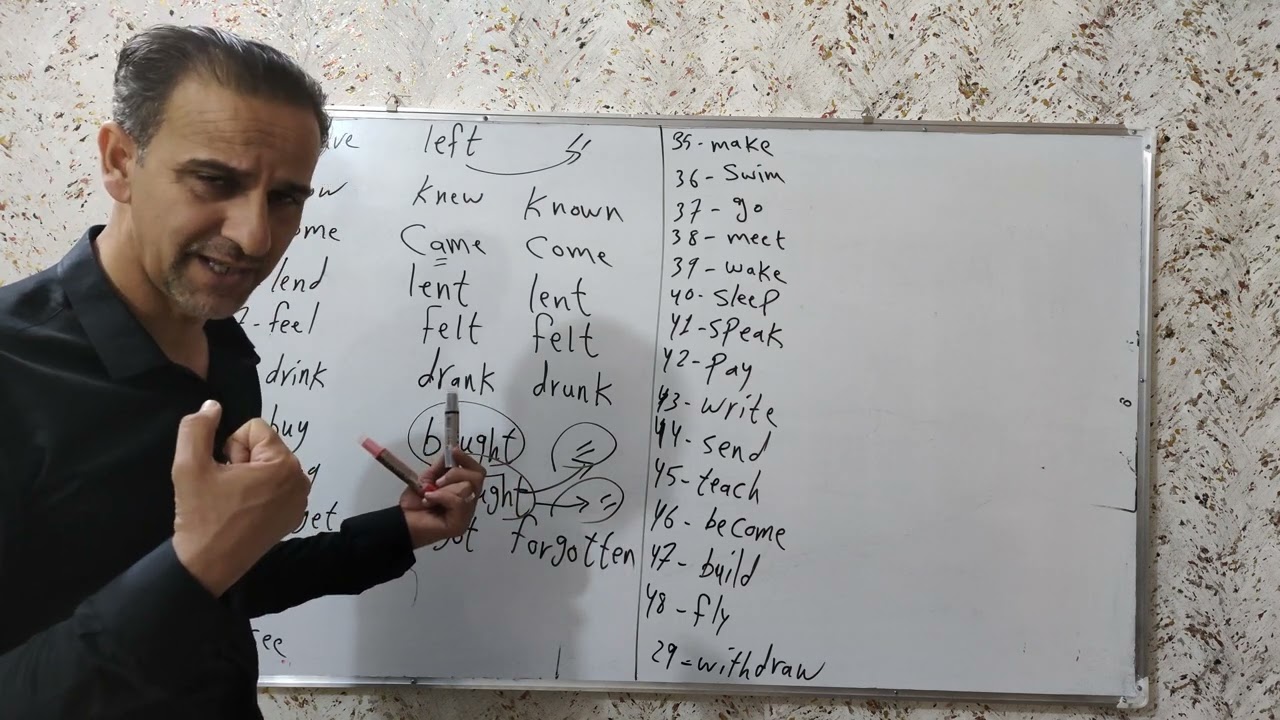 left "
knew known
came come
lend lent lent
feel felt felt
drink drank drunk
buy bought =
ught =
get got forgotten
ee
35- make
36- Swim
37- go
38- meet
39- wake
40- Sleep
41- speak
42- Pay
43- write
44- send
45- teach
46- become
47- build
48- fly
29- withdraw